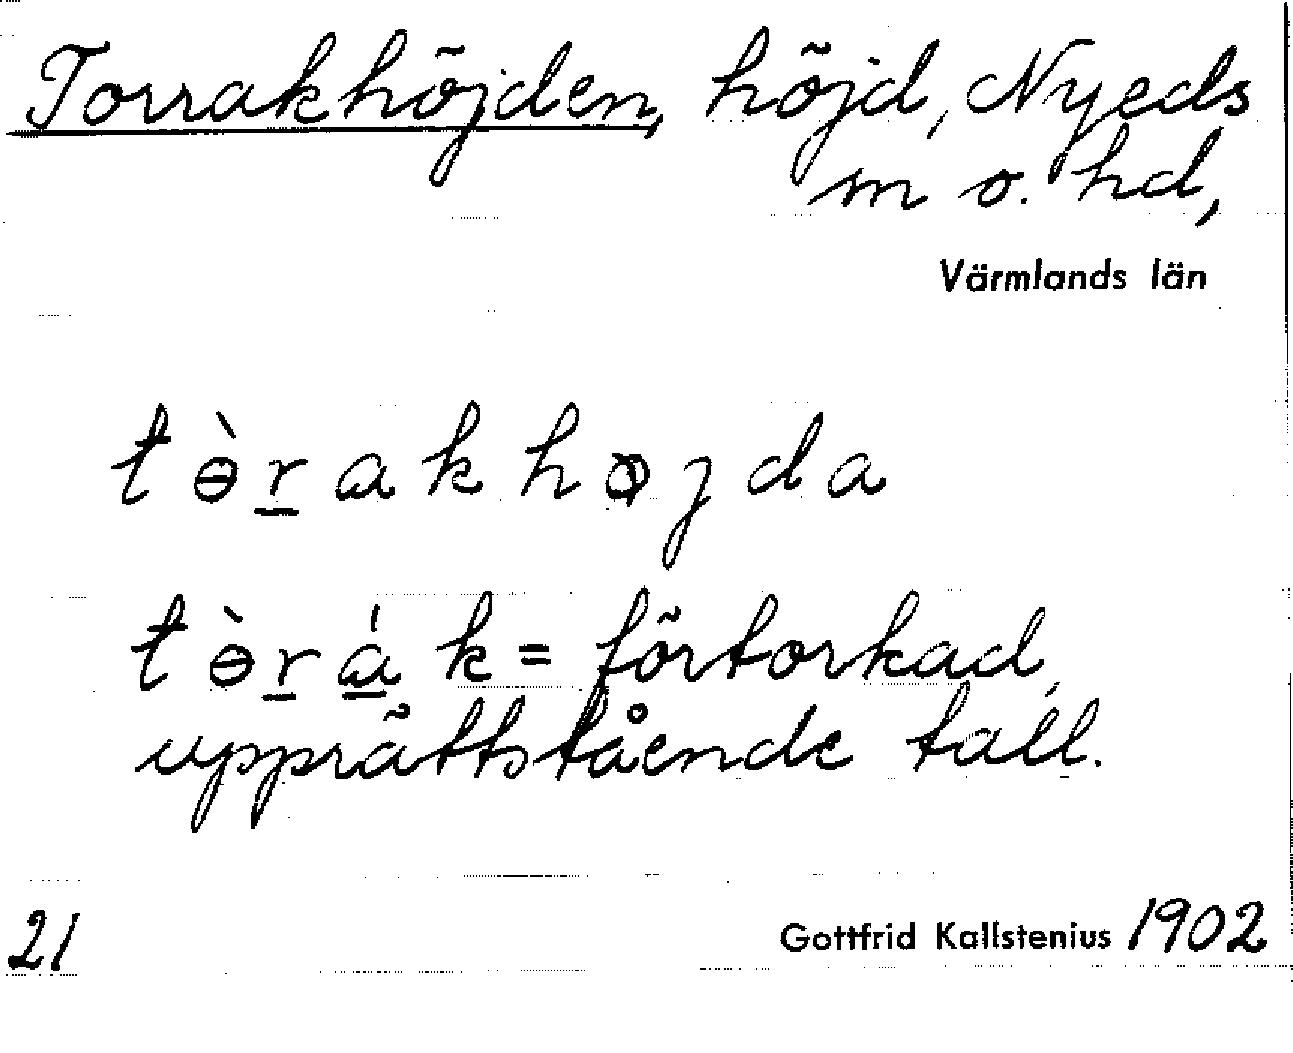 Torrakhöjden, höjd, Nyeds
m o. hd,
Värmlands län
tɵ̀r̲akhɵjda
tɵ̀r̲á̲k = förtorkad,
upprättstående tall.
21
Gottfrid Kallstenius 1902